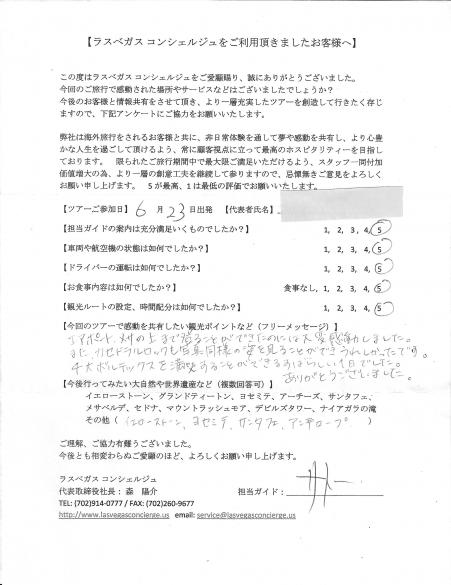 【ラスベガス コンシェルジュをご利用頂きましたお客様へ】
この度はラスベガス コンシェルジュをご愛顧賜り、誠にありがとうございました。
今回のご旅行で感動された場所やサービスなどはございましたでしょうか?
今後のお客様と情報共有をさせて頂き、より一層充実したツアーを創造して行きたく存じ
ますので、下記アンケートにご協力をお願いいたします。
弊社は海外旅行をされるお客様と共に、非日常体験を通して夢や感動を共有し、より心豊
かな人生を過ごして頂けるよう、常に顧客視点に立って最高のホスピタリティーを目指し
ております。 限られたご旅行期間中で最大限ご満足いただけるよう、スタッフ一同付加
価値増大の為、より一層の創意工夫を継続して参りますので、忌憚無きご意見をよろしく
お願い申し上げます。 5が最高、1は最低の評価でお願いいたします。
【ツアーご参加日】 6 月 23日出発 【代表者氏名】
【担当ガイドの案内は充分満足いくものでしたか?】 1, 2, 3, 4, 5
【車両や航空機の状態は如何でしたか?】 1, 2, 3, 4, 5
【ドライバーの運転は如何でしたか?】 1, 2, 3, 4, 5
【お食事内容は如何でしたか?】 食事なし, 1, 2, 3, 4, 5
【観光ルートの設定、時間配分は如何でしたか?】 1, 2, 3, 4, 5
【今回のツアーで感動を共有したい観光ポイントなど(フリーメッセージ)】
の上まで登ることができたのには大変感動しました。
また、カセドラルロックも写真同様の姿を見ることができうれしかったです。
4大ボルテックスを満喫することができるすばらしい1日でした。
ありがとうございました。
【今後行ってみたい大自然や世界遺産など(複数回答可)】
イエローストーン、グランドティートン、ヨセミテ、アーチーズ、サンタフェ、
メサベルデ、セドナ、マウントラッシュモア、デビルズタワー、ナイアガラの滝
その他( イエローストーン、ヨセミテ、サンタフェ、アンテロープ )
ご理解、ご協力有難うございました。
今後とも相変わらぬご愛顧のほど、よろしくお願い申し上げます。
ラスベガス コンシェルジュ
代表取締役社長: 森 陽介 担当ガイド:
TEL: (702)914-0777 / FAX: (702)260-9677
http://www.lasvegasconcierge.us email: service@lasvegasconcierge.us